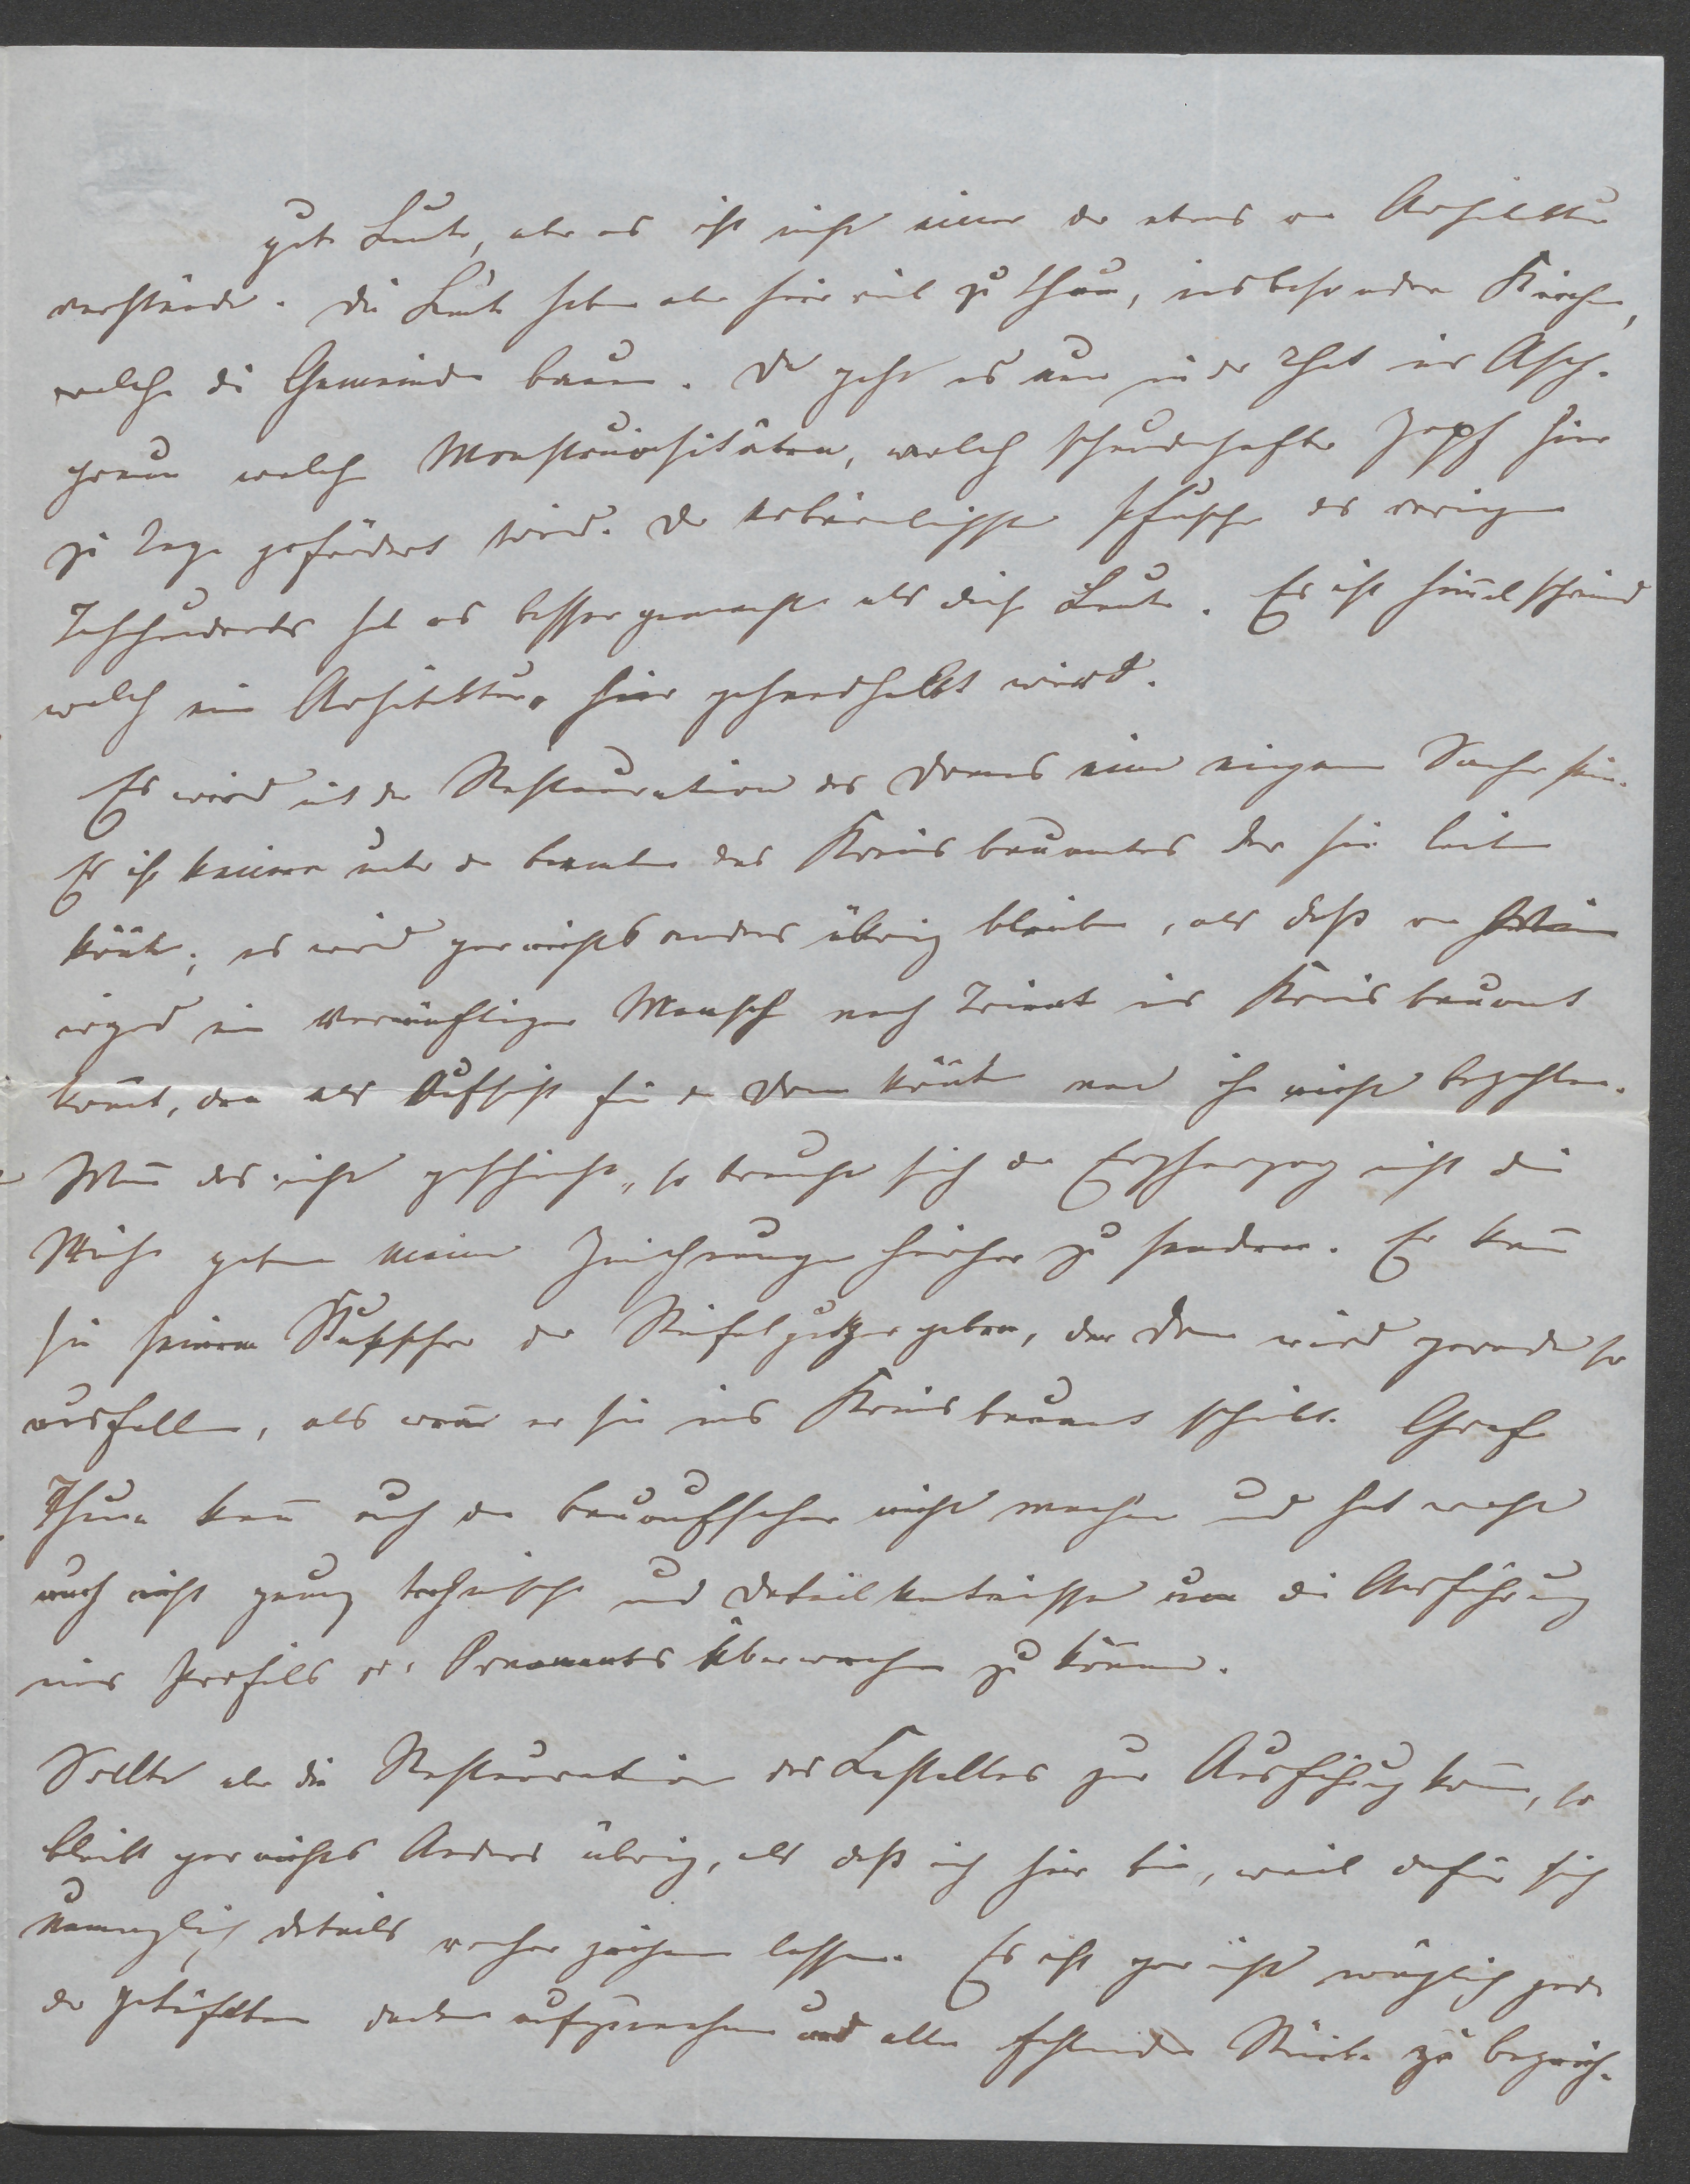 gute Leute, aber es ist nicht einer der etwas von Architektur
verstünde. Die Leute haben aber hier viel zu thun, insbesondere Kirchen,
welche die Gemeinden bauen. Da geht es nun in der That ins Asch-
graue welche Monstruositäten, welch schauderhafter Zopf hier
zu Tage gefördert wird. Der erbärmlichste Pfuscher des vorigen
Jahrhunderts hat es besser gemacht als diese Leute. Es ist himelschreiend
welch eine Architektur hier gehandhabt wird.
Es wird mit der Restauration des Domes eine eigene Sache sein.
Es ist keiner unter den beamten des Kreisbauamtes der sie leiten
könte; es wird gar nichts anders übrig bleiben, als daß von
irgend ein vernünftiger Mensch nach Trient ins Kreisbauamt
komt, den als Aufsicht für den Dom könte man ihn nicht bezahlen.
Wen das nicht geschieht, so braucht sich der Erzherzog nicht die
Mühe geben meine Zeichnungen hierher zu senden. Er kan
sie seinem Kutscher oder Stiefelputzer geben, der Dom wird gerade so
ausfallen, als wen er sie ins Kreisbauamt schickt. Graf
Thun kan auch den bauaufseher nicht machen und hat wohl
auch nicht genug technische und Detailkentnisse um die Ausführung
eines Profils od. Ornaments überwachen zu könen.
Sollte aber die Restauration des Castelles zur Ausführung komen, so
bleibt gar nichts Anders übrig, als daß ich hier bin, weil dafür sich
unmöglich Details vorher zeichnen lassen. Es ist gar nicht möglich jede
der getäfelten decken aufzunehmen und alle fehlenden Stücke zu bezeich-